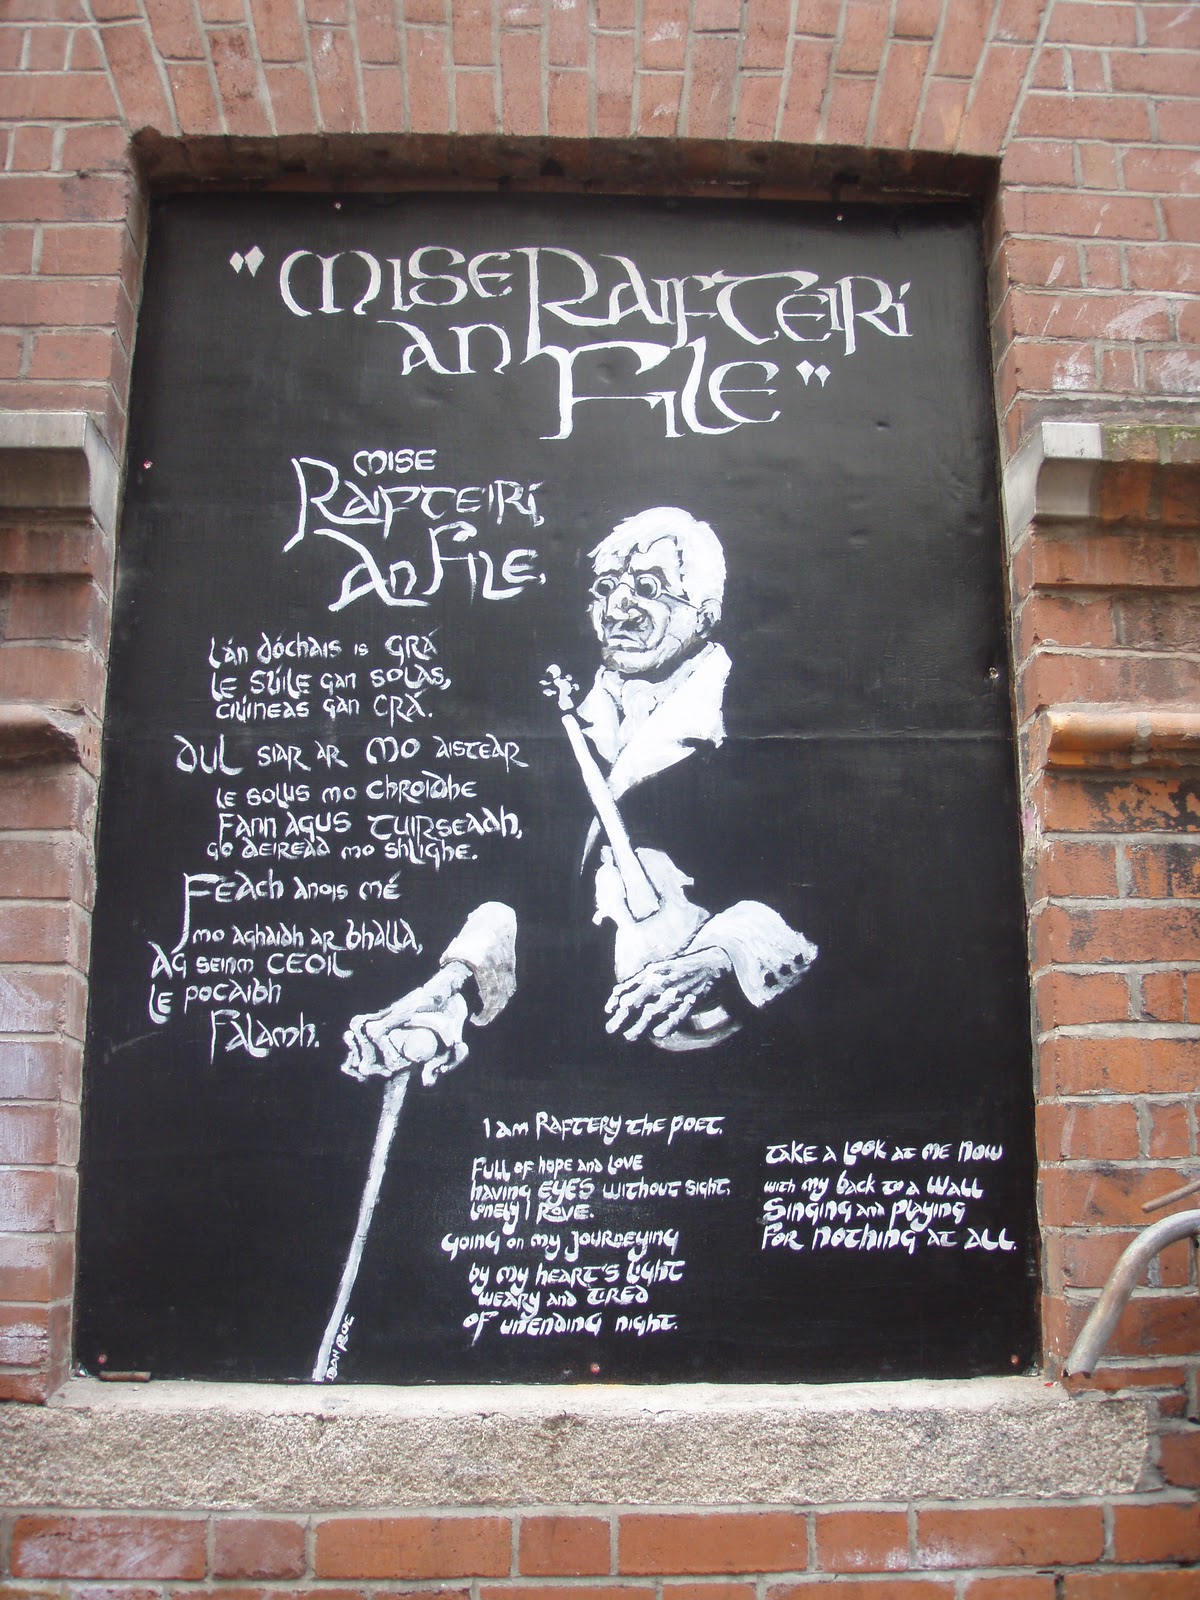 "MISE RAIFTEIRÍ
AN FILE"
MISE
RAIFTEIRÍ,
AN FILE,
Lán dóchais is GRÁ
LE SÚILE gan SOLAS,
CIÚINEAS gan CRÁ.
DUL SIAR AR MO AISTEAR
LE SOLUS MO CHROIDHE
FANN AGUS TUIRSEADH,
GO DEIREAD MO SHLIGHE.
FÉACH ANOIS MÉ
MO AGHAIDH AR BHALLA,
AG SEINM CEOIL
LE POCAIBH
FALAMH.
I AM RAFTERY THE POET.
FULL OF HOPE AND LOVE
HAVING EYES WITHOUT SIGHT,
LONELY I ROVE.
GOING ON MY JOURNEYING
BY MY HEART'S LIGHT
WEARY AND TIRED
OF UNENDING NIGHT.
TAKE A LOOK AT ME NOW
WITH MY BACK TO A WALL
SINGING AND PLAYING
FOR NOTHING AT ALL.
DAN ROE